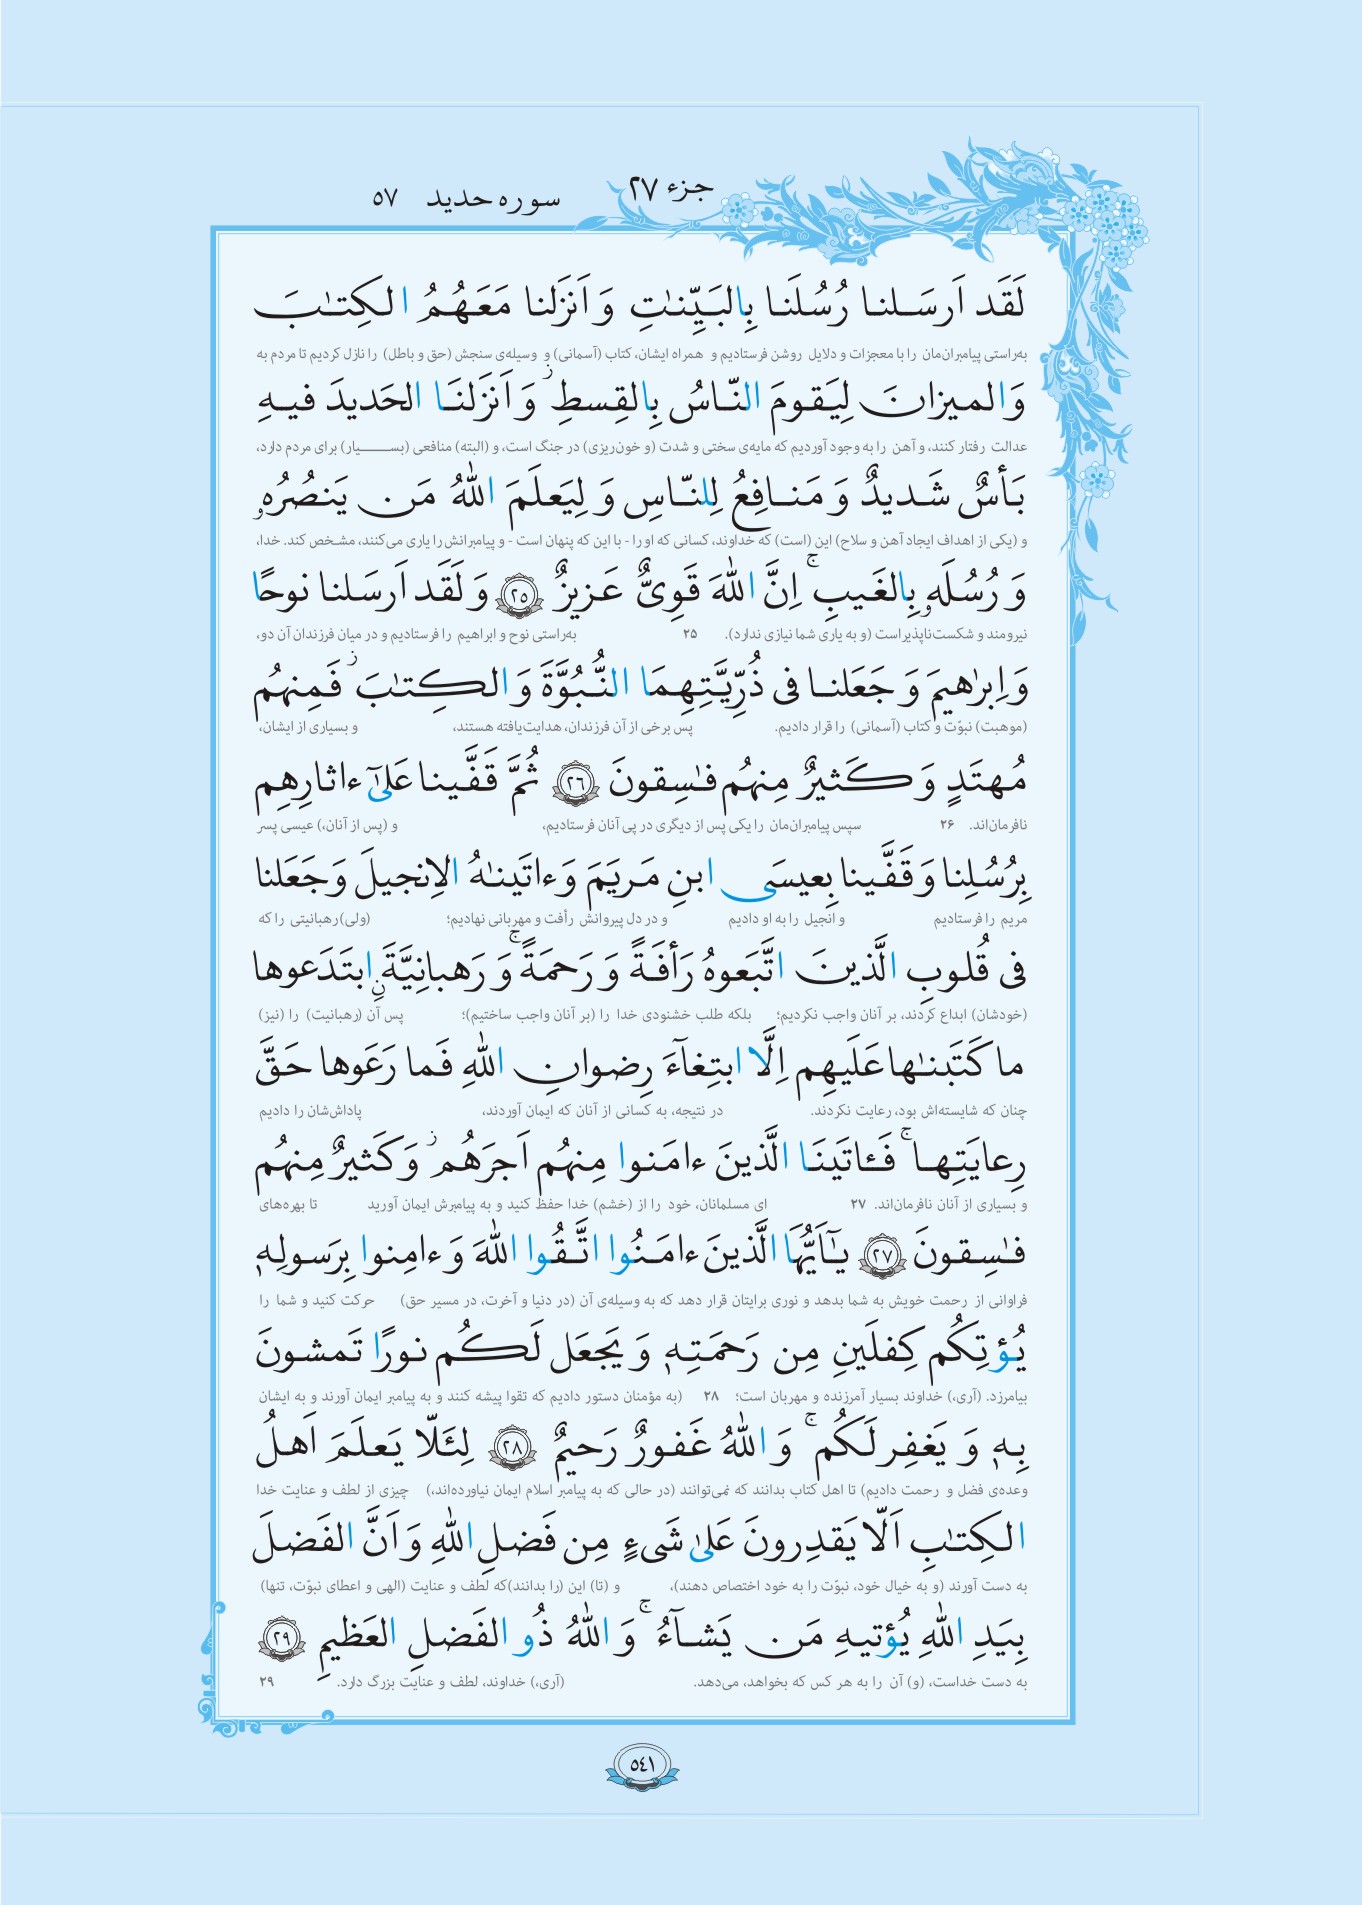 جزء ۲۷
سوره حدید ۵۷
لَقَد اَرسَلنا رُسُلَنا بِالبَيِّنٰتِ وَ اَنزَلنا مَعَهُمُ الكِتٰبَ
به‌راستی پیامبران‌مان را با معجزات و دلایل روشن فرستادیم و همراه ایشان، کتاب (آسمانی) و وسیله‌ی سنجش (حق و باطل) را نازل کردیم تا مردم به
وَالميزانَ لِيَقومَ النّاسُ بِالقِسطِ ز وَ اَنزَلنَا الحَديدَ فيهِ
عدالت رفتار کنند، و آهن را به وجود آوردیم که مایه‌ی سختی و شدت (و خون‌ریزی) در جنگ است، و (البته) منافعی (بسـیار) برای مردم دارد،
بَأسٌ شَديدٌ وَ مَنافِعُ لِلنّاسِ وَ لِيَعلَمَ اللّٰهُ مَن يَنصُرُهو
و (یکی از اهداف ایجاد آهن و سلاح) این (است) که خداوند، کسانی که او را - با این که پنهان است - و پیامبرانش را یاری می‌کنند، مشخص کند. خدا،
وَ رُسُلَهو بِالغَيبِ ۚ اِنَّ اللّٰهَ قَوِىٌّ عَزيزٌ ۲۵ وَ لَقَد اَرسَلنا نوحًا
نیرومند و شکست‌ناپذیر است (و به یاری شما نیازی ندارد). ۲۵ به‌راستی نوح و ابراهیم را فرستادیم و در میان فرزندان آن دو،
وَ اِبرٰهيمَ وَ جَعَلنا فى ذُرِّيَّتِهِمَا النُّبُوَّةَ وَ الكِتٰبَ ز فَمِنهُم
(موهبت) نبوّت و کتاب (آسمانی) را قرار دادیم. پس برخی از آن فرزندان، هدایت‌یافته هستند، و بسیاری از ایشان،
مُهتَدٍ وَ كَثيرٌ مِنهُم فٰسِقونَ ۲۶ ثُمَّ قَفَّينا عَلىٰٓ ءاثارِهِم
نافرمان‌اند. ۲۶ سپس پیامبران‌مان را یکی پس از دیگری در پی آنان فرستادیم، و (پس از آنان،) عیسی پسر
بِرُسُلِنا وَ قَفَّينا بِعيسَى ابنِ مَريَمَ وَ ءاتَينٰهُ الاِنجيلَ وَ جَعَلنا
مریم را فرستادیم و انجیل را به او دادیم و در دل پیروانش رأفت و مهربانی نهادیم؛ (ولی) رهبانیتی را که
فى قُلوبِ الَّذينَ اتَّبَعوهُ رَأفَةً وَ رَحمَةً ۚ وَ رَهبانِيَّةَ نِ ابتَدَعوها
(خودشان) ابداع کردند، بر آنان واجب نکردیم؛ بلکه طلب خشنودی خدا را (بر آنان واجب ساختیم)؛ پس آن (رهبانیت) را (نیز)
ما كَتَبنٰها عَلَيهِم اِلَّا ابتِغآءَ رِضوانِ اللّٰهِ فَما رَعَوها حَقَّ
چنان که شایسته‌اش بود، رعایت نکردند. در نتیجه، به کسانی از آنان که ایمان آوردند، پاداش‌شان را دادیم
رِعايَتِها ۚ فَـٔاتَينَا الَّذينَ ءامَنوا مِنهُم اَجرَهُم ز وَ كَثيرٌ مِنهُم
و بسیاری از آنان نافرمان‌اند. ۲۷ ای مسلمانان، خود را از (خشم) خدا حفظ کنید و به پیامبرش ایمان آورید تا بهره‌های
فٰسِقونَ ۲۷ يٰٓاَيُّهَا الَّذينَ ءامَنُوا اتَّقُوا اللّٰهَ وَ ءامِنوا بِرَسولِهٖ
فراوانی از رحمت خویش به شما بدهد و نوری برایتان قرار دهد که به وسیله‌ی آن (در دنیا و آخرت، در مسیر حق) حرکت کنید و شما را
يُؤتِكُم كِفلَينِ مِن رَحمَتِهٖ وَ يَجعَل لَكُم نورًا تَمشونَ
بیامرزد. (آری،) خداوند بسیار آمرزنده و مهربان است؛ ۲۸ (به مؤمنان دستور دادیم که تقوا پیشه کنند و به پیامبر ایمان آورند و به ایشان
بِهٖ وَ يَغفِر لَكُم ۚ وَ اللّٰهُ غَفورٌ رَحيمٌ ۲۸ لِئَلّا يَعلَمَ اَهلُ
وعده‌ی فضل و رحمت دادیم) تا اهل کتاب بدانند که نمی‌توانند (در حالی که به پیامبر اسلام ایمان نیاورده‌اند،) چیزی از لطف و عنایت خدا
الكِتٰبِ اَلّا يَقدِرونَ عَلىٰ شَىءٍ مِن فَضلِ اللّٰهِ وَ اَنَّ الفَضلَ
به دست آورند (و به خیال خود، نبوّت را به خود اختصاص دهند)، و (تا) این (را بدانند) که لطف و عنایت (الهی و اعطای نبوّت، تنها)
بِيَدِ اللّٰهِ يُؤتيهِ مَن يَشآءُ ۚ وَ اللّٰهُ ذُو الفَضلِ العَظيمِ ۲۹
به دست خداست، (و) آن را به هر کس که بخواهد، می‌دهد. (آری،) خداوند، لطف و عنایت بزرگ دارد. ۲۹
۵۴۱